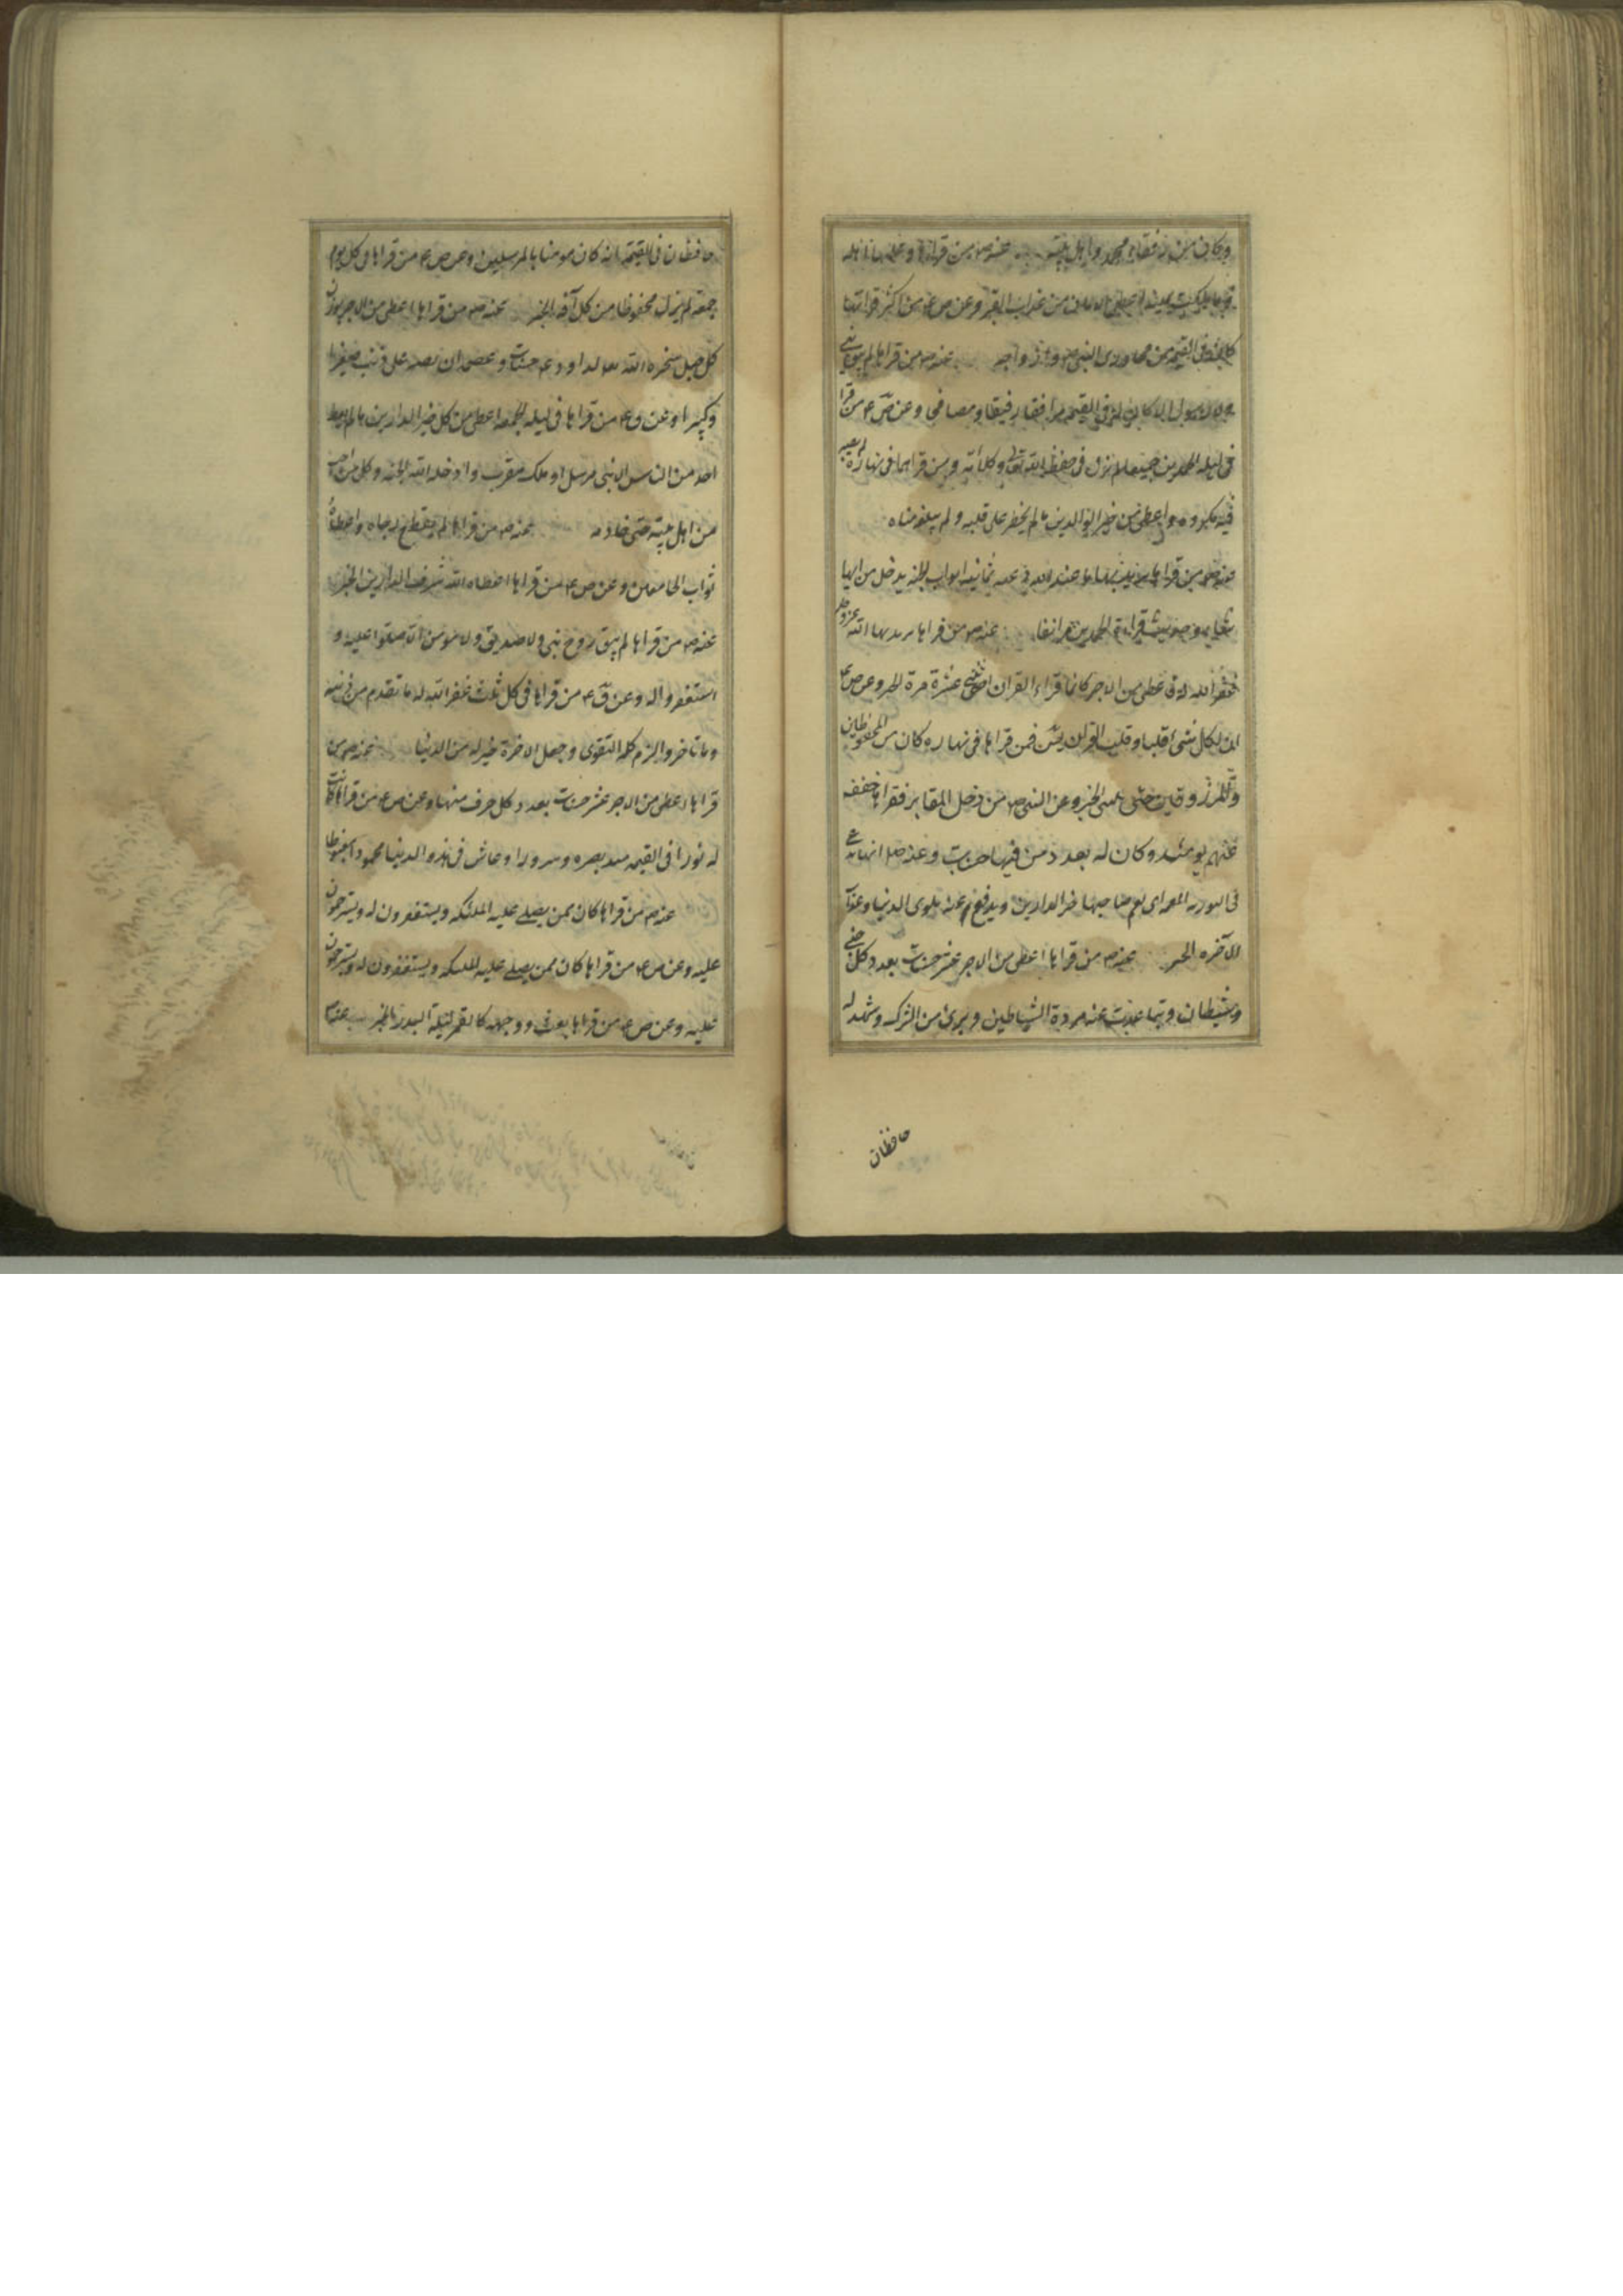 وكان من رفقاء محمد واهل بيته عنه ص من قراها وعلمها اهله
وما ملكت يمينه اعطى الامان من عذاب القبر وعن ص ع من اكثر قراءتها
كان في القيمة من مجاوري النبي ص وازواجه عنه ص من قراها لم يبق نبي
ولا رسول الا كان له في القيمة مرافقا رفيقا ومصافحا وعن ص ع من قرا
في ليلة الحمدين جميعا لم يزل في حفظ الله تعالى وكلائه ومن قراهما في نهاره لم يصبه
فيه مكروه واعطى من خير الدارين ما لم يخطر على قلبه ولم يبلغ مناه
عنه ص من قراها يريد بها ما عند الله فتحت له ثمانية ابواب الجنة يدخل من ايها
شاء قراءة الحمدين مر انفا عنه ص من قراها يريد بها الله عز وجل
غفر الله له واعطى من الاجر كانما قراء القران اثنتى عشرة مرة الخبر وعن ص ع
ان لكل شئ قلبا وقلب القران يس فمن قراها في نهاره كان من المحفوظين
والمرزوقين حتى يمسى الخبر وعن النبي ص من دخل المقابر فقراها خفف
عنهم يومئذ وكان له بعدد من فيها حسنات وعنه ص انها تدعى
في التورية المعمة اي تعم صاحبها خير الدارين ويدفع عنه بلوى الدنيا وعذاب
الاخرة الخبر عنه ص من قراها اعطى من الاجر عشر حسنات بعدد كل جني
وشيطان وتباعدت عنه مردة الشياطين وبرئ من الشرك وشهد له
حافظان
حافظان في القيمة انه كان مومنا بالمرسلين وعن ص ع من قراها في كل يوم
جمعة لم يزل محفوظا من كل آفة الخبر عنه ص من قراها اعطى من الاجر بوزن
كل جبل سخره الله تعالى لداود ع حسنات وعصم ان يصر على ذنب صغيرا
وكبيرا وعن ق ع من قراها في ليلة الجمعة اعطى من كل خير الدارين ما لم يعط
احد من الناس الا نبي مرسل او ملك مقرب وادخله الله الجنة وكل من احب
من اهل بيته حتى خادمه عنه ص من قراها لم يقطع رجاه واعطاه
ثواب الخائفين وعن ص ع من قراها اعطاه الله شرف الدارين الخبر
عنه ص من قراها لم يبق روح نبي ولا صديق ولا مومن الا صلوا عليه و
استغفروا له وعن ق ع من قراها في كل ثلث غفر الله له ما تقدم من ذنبه
وما تاخر والزم كلمة التقوى وجعل الاخرة خير له من الدنيا عنه ص من
قراها اعطى من الاجر عشر حسنات بعدد كل حرف منها وعن ص ع من قراها كانت
له نورا في القيمة مد بصره وسرورا وعاش في هذه الدنيا محمودا مغبوطا
عنه ص من قراها كان ممن يصلي عليه الملئكة ويستغفرون له ويسترحمون
عليه وعن ص ع من قراها كان ممن يصلي عليه الملئكة ويستغفرون له ويسترحمون
عليه وعن ص ع من قراها بعث ووجهه كالقمر ليلة البدر الخبر عنه ص